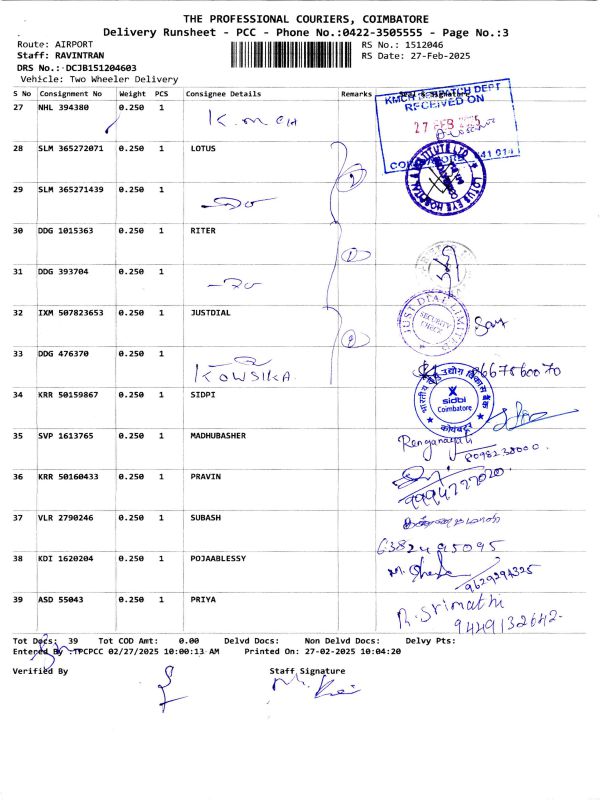 THE PROFESSIONAL COURIERS, COIMBATORE
Delivery Runsheet - PCC - Phone No.:0422-3505555 - Page No.:3
Route: AIRPORT RS No.: 1512046
Staff: RAVINTRAN RS Date: 27-Feb-2025
DRS No.: DCJB151204603
Vehicle: Two Wheeler Delivery
S No Consignment No Weight PCS Consignee Details Remarks
27 NHL 394380 0.250 1 K.MCH
KMCH DESPATCH DEPT
RECEIVED ON
27 FEB
28 SLM 365272071 0.250 1 LOTUS
LOTUS EYE HOSPITAL & INSTITUTE LTD
29 SLM 365271439 0.250 1
30 DDG 1015363 0.250 1 RITER
31 DDG 393704 0.250 1
32 IXM 507823653 0.250 1 JUSTDIAL
JUST DIAL LIMITED
SECURITY
CHECK
33 DDG 476370 0.250 1
KOWSIKA
34 KRR 50159867 0.250 1 SIDPI
sidbi
Coimbatore
35 SVP 1613765 0.250 1 MADHUBASHER
Renganayaki
8098238000.
36 KRR 50160433 0.250 1 PRAVIN
37 VLR 2790246 0.250 1 SUBASH
6382495095
38 KDI 1620204 0.250 1 POJAABLESSY
9629294325
39 ASD 55043 0.250 1 PRIYA
R. Srimathi
9449132642-
Tot Docs: 39 Tot COD Amt: 0.00 Delvd Docs: Non Delvd Docs: Delvy Pts:
Entered By :TPCPCC 02/27/2025 10:00:13 AM Printed On: 27-02-2025 10:04:20
Verified By Staff Signature